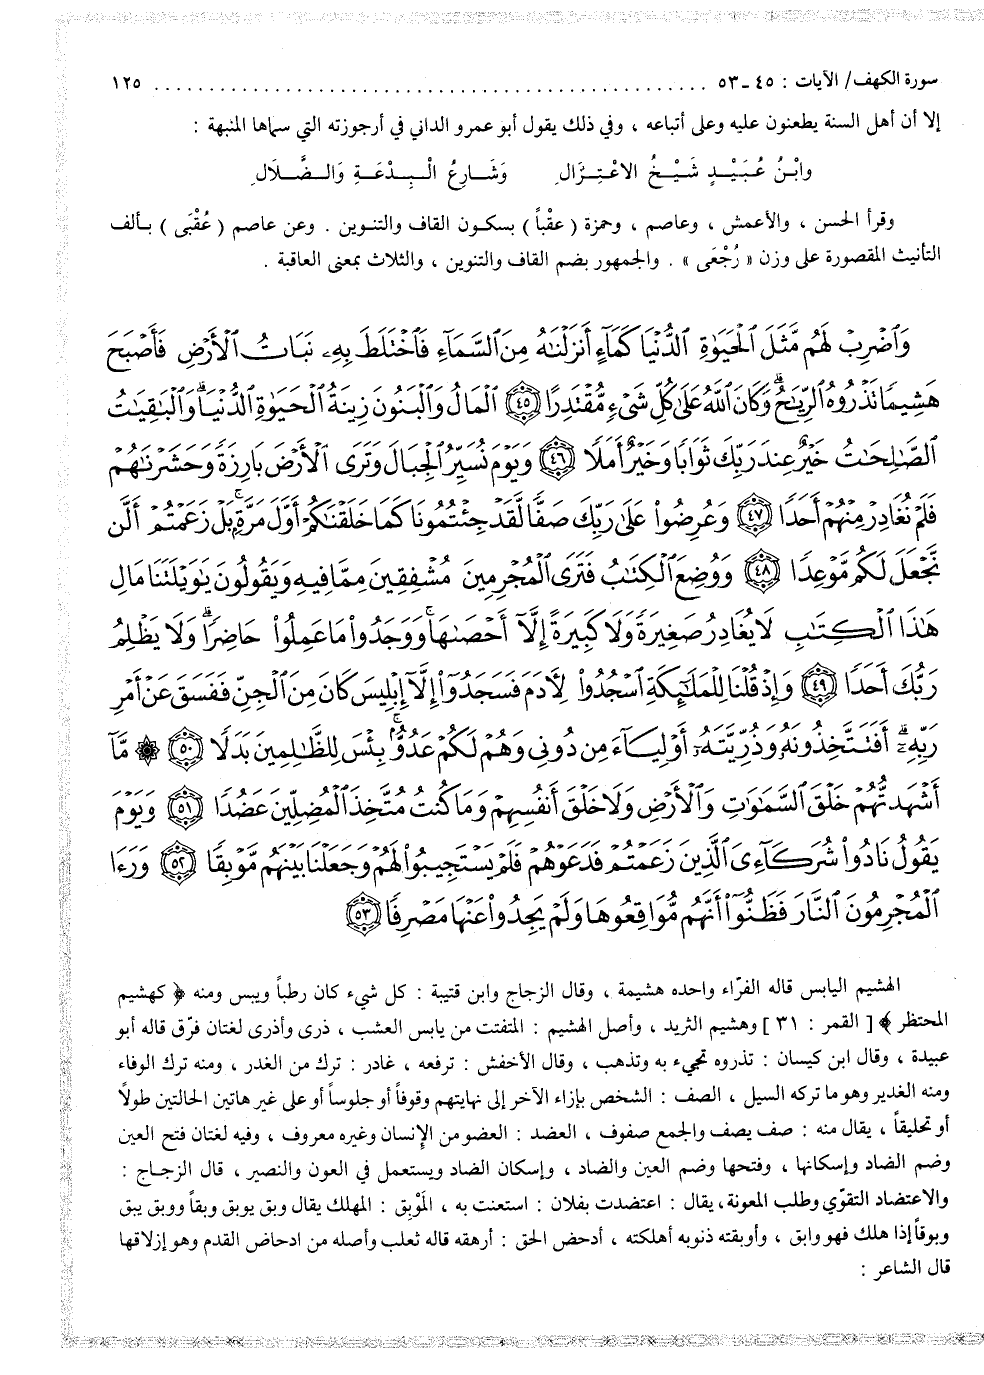 سورة الكهف/ الآيات : ٤٥ ـ ٥٣ . . . . . . . . . . . . . . . . . . . . . . . . . . . . . . . . . . . . . . . . . . . . . . . . . . ١٢٥
إلا أن أهل السنة يطعنون عليه وعلى أتباعه ، وفي ذلك يقول أبو عمرو الداني في أرجوزته التي سماها المنبهة :
وابْنُ عُبَيْدٍ شَيْخُ الاعْتِزَالِ وَشَارِعُ الْبِدْعَةِ وَالضَّلَالِ
وقرأ الحسن ، والأعمش ، وعاصم ، وحمزة ( عقْباً ) بسكون القاف والتنوين . وعن عاصم ( عُقْبَى ) بألف
التأنيث المقصورة على وزن « رُجْعَى » . والجمهور بضم القاف والتنوين ، والثلاث بمعنى العاقبة .
وَٱضْرِبْ لَهُم مَّثَلَ ٱلْحَيَوٰةِ ٱلدُّنْيَا كَمَآءٍ أَنزَلْنَٰهُ مِنَ ٱلسَّمَآءِ فَٱخْتَلَطَ بِهِۦ نَبَاتُ ٱلْأَرْضِ فَأَصْبَحَ
هَشِيمًا تَذْرُوهُ ٱلرِّيَٰحُ ۗ وَكَانَ ٱللَّهُ عَلَىٰ كُلِّ شَىْءٍ مُّقْتَدِرًا ٤٥ ٱلْمَالُ وَٱلْبَنُونَ زِينَةُ ٱلْحَيَوٰةِ ٱلدُّنْيَا ۖ وَٱلْبَٰقِيَٰتُ
ٱلصَّٰلِحَٰتُ خَيْرٌ عِندَ رَبِّكَ ثَوَابًا وَخَيْرٌ أَمَلًا ٤٦ وَيَوْمَ نُسَيِّرُ ٱلْجِبَالَ وَتَرَى ٱلْأَرْضَ بَارِزَةً وَحَشَرْنَٰهُمْ
فَلَمْ نُغَادِرْ مِنْهُمْ أَحَدًا ٤٧ وَعُرِضُوا۟ عَلَىٰ رَبِّكَ صَفًّا لَّقَدْ جِئْتُمُونَا كَمَا خَلَقْنَٰكُمْ أَوَّلَ مَرَّةٍۭ ۚ بَلْ زَعَمْتُمْ أَلَّن
نَّجْعَلَ لَكُم مَّوْعِدًا ٤٨ وَوُضِعَ ٱلْكِتَٰبُ فَتَرَى ٱلْمُجْرِمِينَ مُشْفِقِينَ مِمَّا فِيهِ وَيَقُولُونَ يَٰوَيْلَتَنَا مَالِ
هَٰذَا ٱلْكِتَٰبِ لَا يُغَادِرُ صَغِيرَةً وَلَا كَبِيرَةً إِلَّآ أَحْصَىٰهَا ۚ وَوَجَدُوا۟ مَا عَمِلُوا۟ حَاضِرًا ۗ وَلَا يَظْلِمُ
رَبُّكَ أَحَدًا ٤٩ وَإِذْ قُلْنَا لِلْمَلَٰٓئِكَةِ ٱسْجُدُوا۟ لِءَادَمَ فَسَجَدُوٓا۟ إِلَّآ إِبْلِيسَ كَانَ مِنَ ٱلْجِنِّ فَفَسَقَ عَنْ أَمْرِ
رَبِّهِۦٓ ۗ أَفَتَتَّخِذُونَهُۥ وَذُرِّيَّتَهُۥٓ أَوْلِيَآءَ مِن دُونِى وَهُمْ لَكُمْ عَدُوٌّۢ ۚ بِئْسَ لِلظَّٰلِمِينَ بَدَلًا ٥٠ ۞ مَّآ
أَشْهَدتُّهُمْ خَلْقَ ٱلسَّمَٰوَٰتِ وَٱلْأَرْضِ وَلَا خَلْقَ أَنفُسِهِمْ وَمَا كُنتُ مُتَّخِذَ ٱلْمُضِلِّينَ عَضُدًا ٥١ وَيَوْمَ
يَقُولُ نَادُوا۟ شُرَكَآءِىَ ٱلَّذِينَ زَعَمْتُمْ فَدَعَوْهُمْ فَلَمْ يَسْتَجِيبُوا۟ لَهُمْ وَجَعَلْنَا بَيْنَهُم مَّوْبِقًا ٥٢ وَرَءَا
ٱلْمُجْرِمُونَ ٱلنَّارَ فَظَنُّوٓا۟ أَنَّهُم مُّوَاقِعُوهَا وَلَمْ يَجِدُوا۟ عَنْهَا مَصْرِفًا ٥٣
الهشيم اليابس قاله الفرّاء واحده هشيمة ، وقال الزجاج وابن قتيبة : كل شيء كان رطباً ويبس ومنه ﴿ كهشيم
المحتظر ﴾ [ القمر : ٣١ ] وهشيم الثريد ، وأصل الهشيم : المتفتت من يابس العشب ، ذرى وأذرى لغتان فرّق قاله أبو
عبيدة ، وقال ابن كيسان : تذروه تجيء به وتذهب ، وقال الأخفش : ترفعه ، غادر : ترك من الغدر ، ومنه ترك الوفاء
ومنه الغدير وهو ما تركه السيل ، الصف : الشخص بإزاء الآخر إلى نهايتهم وقوفاً أو جلوساً أو على غير هاتين الحالتين طولاً
أو تحليقاً ، يقال منه : صف يصف والجمع صفوف ، العضد : العضو من الإنسان وغيره معروف ، وفيه لغتان فتح العين
وضم الضاد وإسكانها ، وفتحها وضم العين والضاد ، وإسكان الضاد ويستعمل في العون والنصير ، قال الزجاج :
والاعتضاد التقوّي وطلب المعونة، يقال : اعتضدت بفلان : استعنت به ، المَوْبِق : المهلك يقال وبق يوبق وبقاً ووبق يبق
وبوقاً إذا هلك فهو وابق ، وأوبقته ذنوبه أهلكته ، أدحض الحق : أرهقه قاله ثعلب وأصله من ادحاض القدم وهو إزلاقها
قال الشاعر :